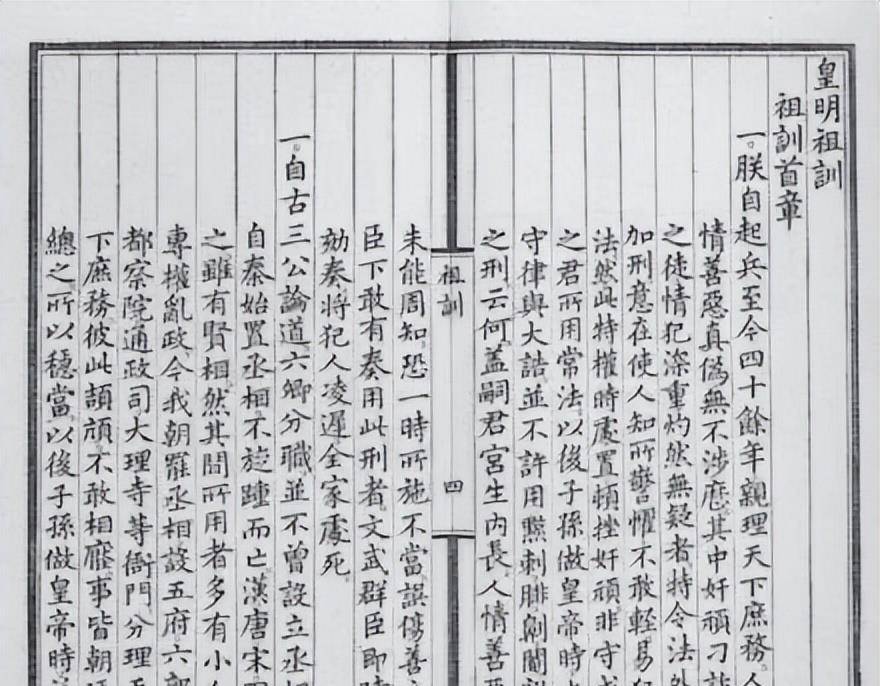 皇明祖訓
祖訓首章
一。朕自起兵至今四十餘年親理天下庶務。人
情善惡真偽無不涉歷其中奸頑刁詐
之徒情犯深重灼然無疑者特令法外
加刑意在使人知所警懼不敢輕易犯
法然此特權時處置頓挫奸頑非守成
之君所用常法。以後子孫做皇帝時
守律與大誥並不許用黥刺腓劓閹割
之刑云何。蓋嗣君宮生內長人情善惡
祖訓
四
未能周知恐一時所施不當誤傷善
臣下敢有奏用此刑者文武群臣即時
劾奏將犯人凌遲全家處死。
一。自古三公論道六卿分職並不曾設立丞相
自秦始置丞相不旋踵而亡漢唐宋
之雖有賢相然其間所用者多有小人
專權亂政。今我朝罷丞相設五府六部
都察院通政司大理寺等衙門分理天
下庶務彼此頡頏不敢相壓事皆朝廷
總之。所以穩當。以後子孫做皇帝時